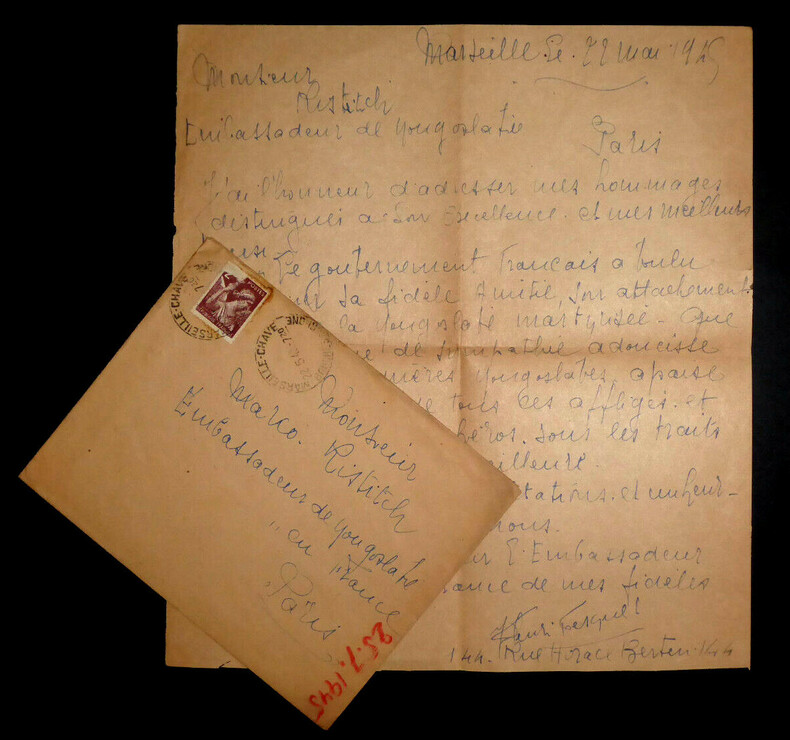 Marseille le 22 mai 1945
Monsieur
Ristitch
Embassadeur de Yougoslatie
Paris
J'ai l'honneur d'adresser mes hommages
distingués a Son Excellence. et mes meilleurs
Le gouternement Français a toulu
sa fidèle Amitié, son attachement
la Yougoslatie martyrisée - que
de sympathie adoucisse
mères yougoslates, apaise
de tous ces affligés. et
héros. sous les traits
meilleure.
et un heur-
nous.
l'Embassadeur
de mes fidèles
Henri
144. Rue Horace Bertin. 144
MARSEILLE-CHAVE
MARSEILLE-CHAVE
Monsieur
Marco. Ristitch
Embassadeur de Yougoslatie
" en France
" Paris
25.7.1945